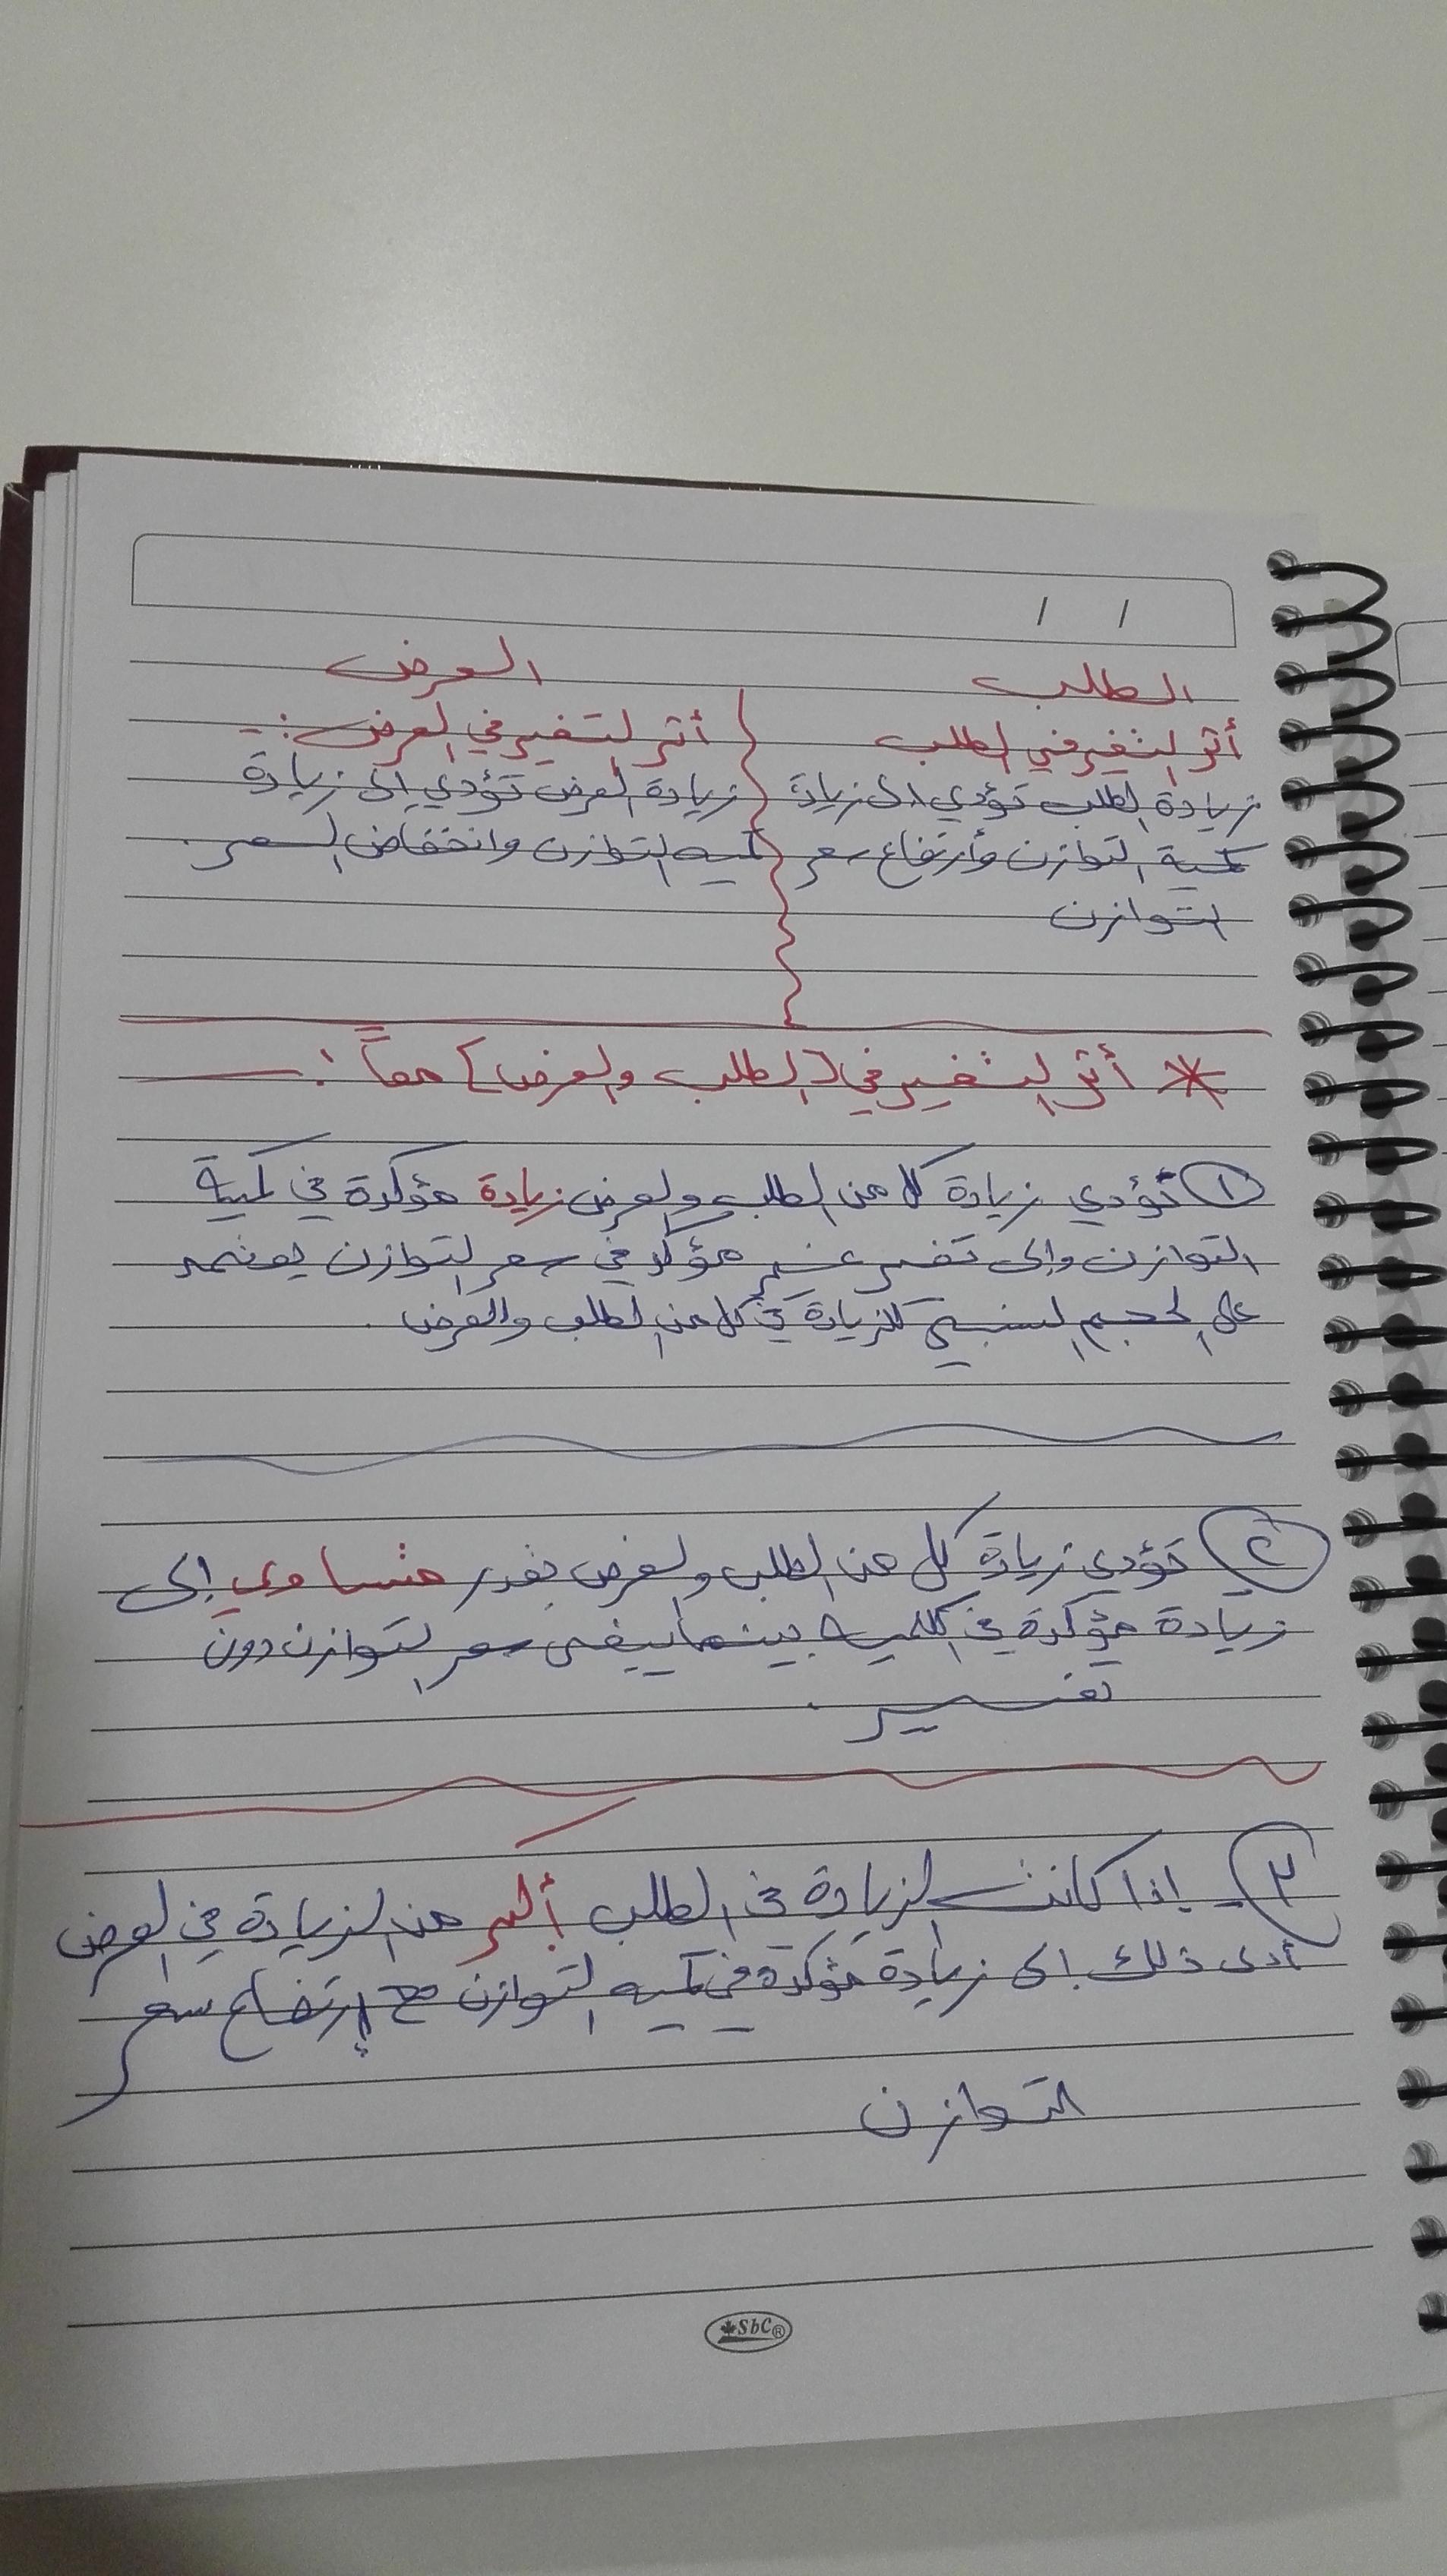 الطلب
أثر التغير في الطلب
زيادة الطلب تؤدي الى زيادة
كمية التوازن وأرتفاع سعر
التوازن
العرض
أثر التغير في العرض :-
زيادة العرض تؤدي إلى زيادة
كميه التوازن وانخفاض السعر .
* أثر التغير في [الطلب والعرض] معاً :
① تؤدي زيادة كل من الطلب والعرض زيادة مؤكدة في كمية
التوازن وإلى تغير غير مؤكد في سعر التوازن يعتمد
على الحجم النسبي للزيادة في كل من الطلب والعرض .
② تؤدي زيادة كل من الطلب والعرض بقدر متساوي إلى
زيادة مؤكدة في الكميه بينما يبقى سعر التوازن دون
تغيير .
٣- إذا كانت الزيادة في الطلب أكبر من الزيادة في العرض
أدى ذلك إلى زيادة مؤكدة في كميه التوازن مع إرتفاع سعر
التوازن
SbC®